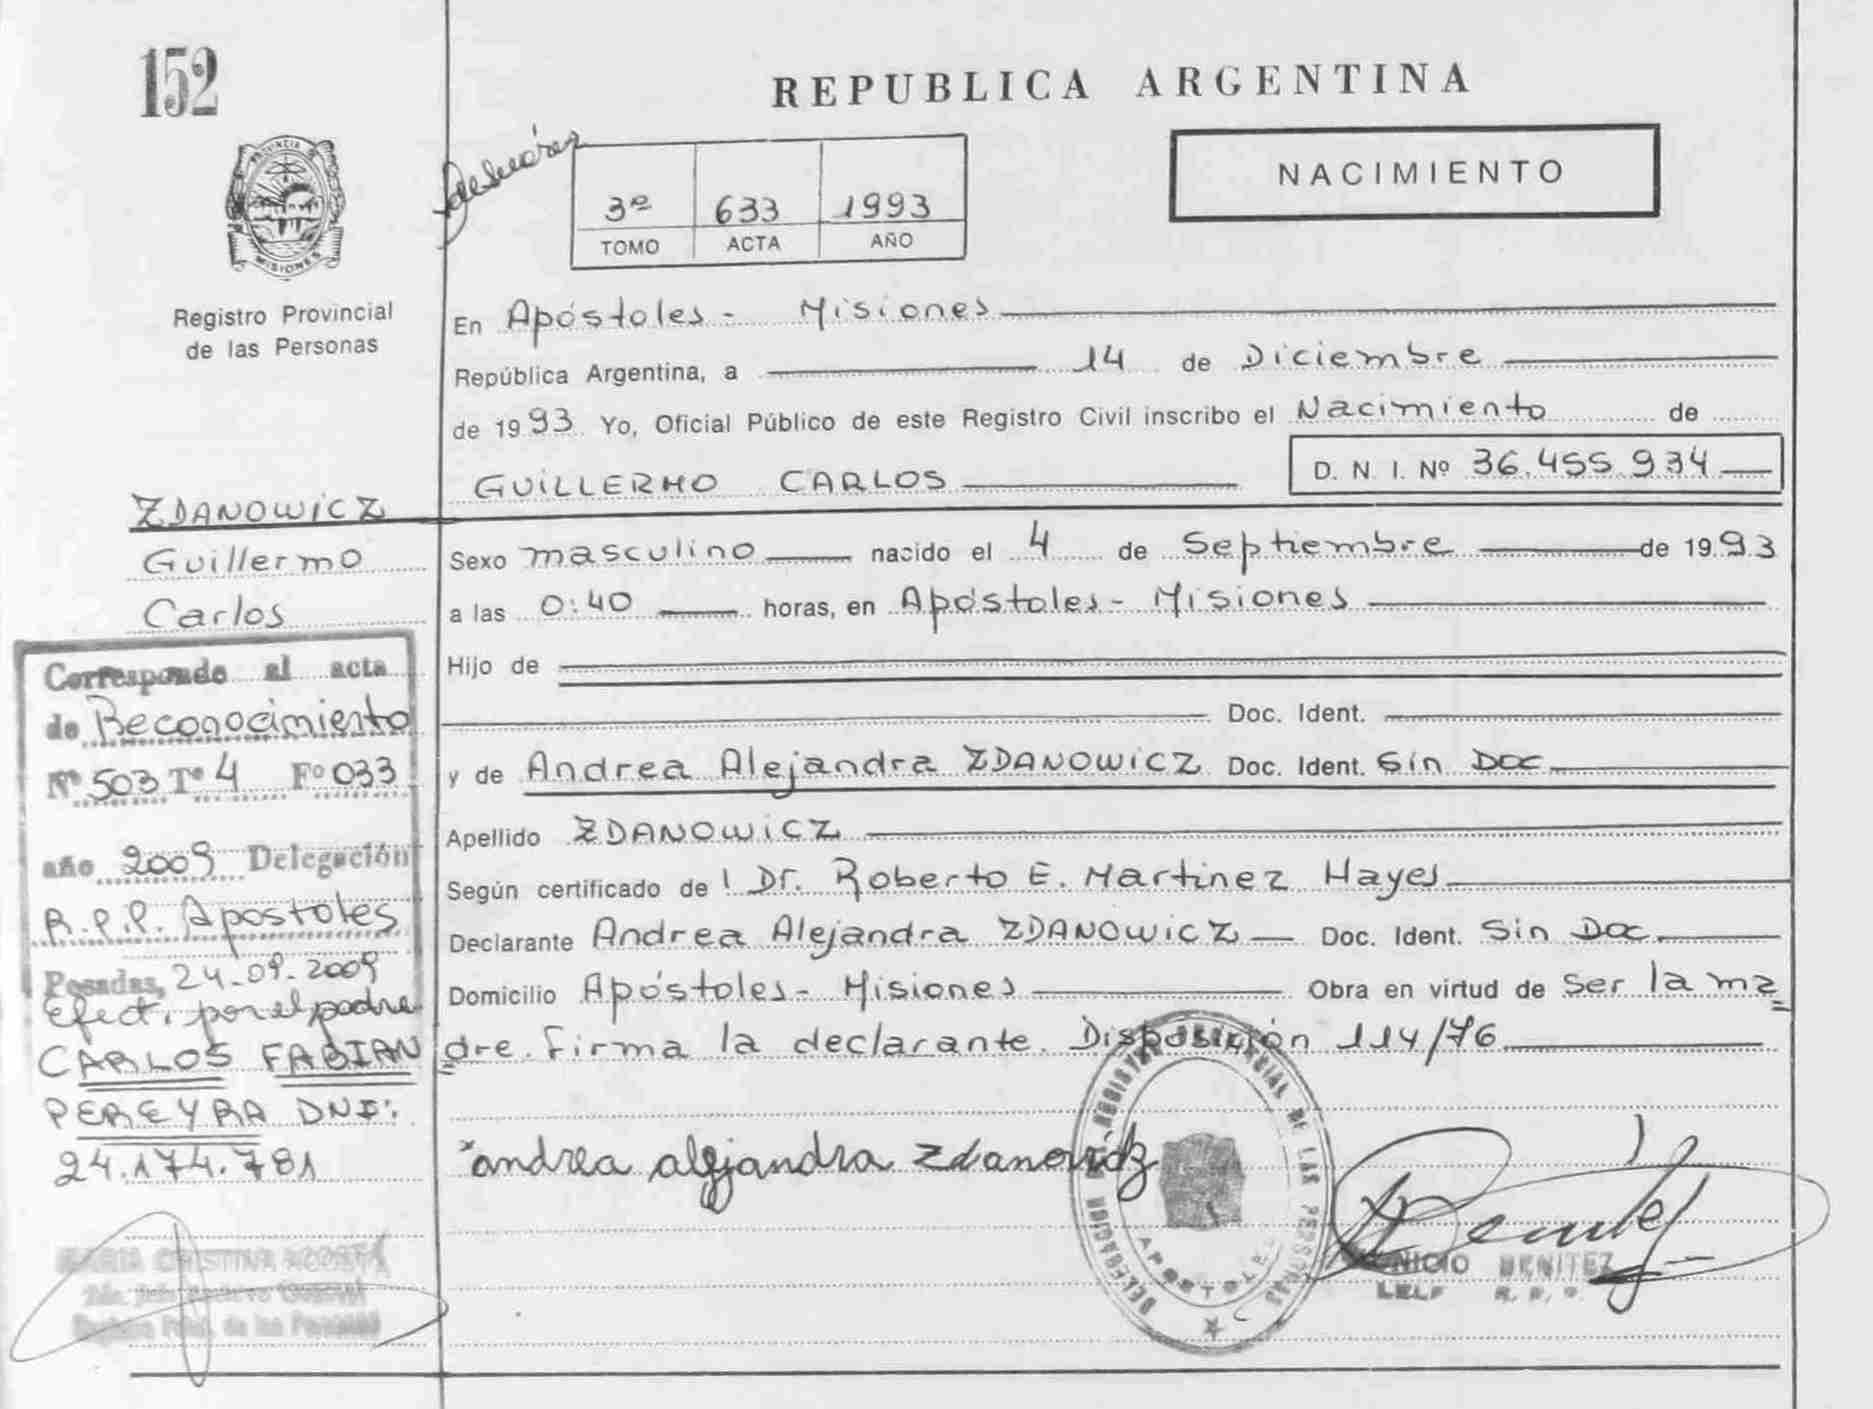 152
REPUBLICA ARGENTINA
NACIMIENTO
PROVINCIA D
MISIONES
Registro Provincial
de las Personas
3º 633 1993
TOMO ACTA AÑO
En Apóstoles - Misiones
República Argentina, a 14 de Diciembre
de 1993 Yo, Oficial Público de este Registro Civil inscribo el Nacimiento de
GUILLERMO CARLOS D. N. I. Nº 36.455.934
Sexo masculino nacido el 4 de Septiembre de 1993
a las 0:40 horas, en Apóstoles - Misiones
Hijo de
Doc. Ident.
y de Andrea Alejandra ZDANOWICZ Doc. Ident. Sin Doc
Apellido ZDANOWICZ
Según certificado de l Dr. Roberto E. Martinez Hayes
Declarante Andrea Alejandra ZDANOWICZ Doc. Ident. Sin Doc
Domicilio Apóstoles - Misiones Obra en virtud de Ser la ma
dre. Firma la declarante. Disposición 114/76
andrea alejandra Zdanowicz
DELEGACION DEL REGISTRO PROVINCIAL DE LAS PERSONAS
APOSTOLES
BENITEZ
ZDANOWICZ
Guillermo
Carlos
Corresponde al acta
de Reconocimiento
Nº 503 Tº 4 Fº 033
año 2009 Delegación
R.P.P. Apostoles
Posadas, 24-09-2009
Efect. por el padre
CARLOS FABIAN
PEREYRA DNI:
24.174.781
MARIA CRISTINA ACOSTA